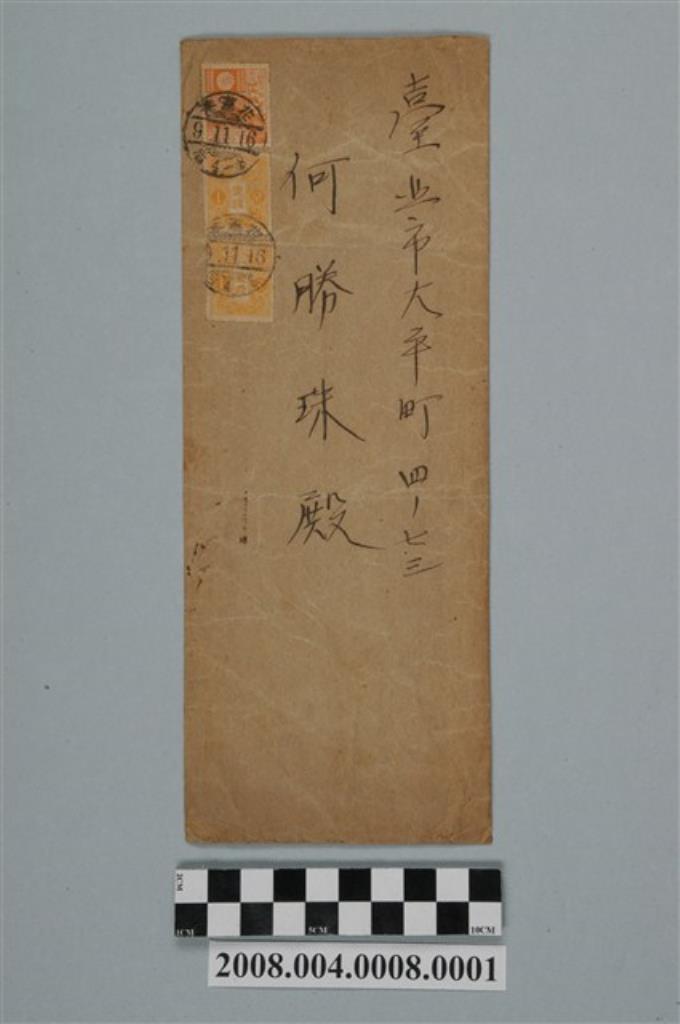 臺北市大平町四ノ七三
何勝珠殿
9.11.16
9.11.16
2CM
1CM
5CM
10CM
2008.004.0008.0001